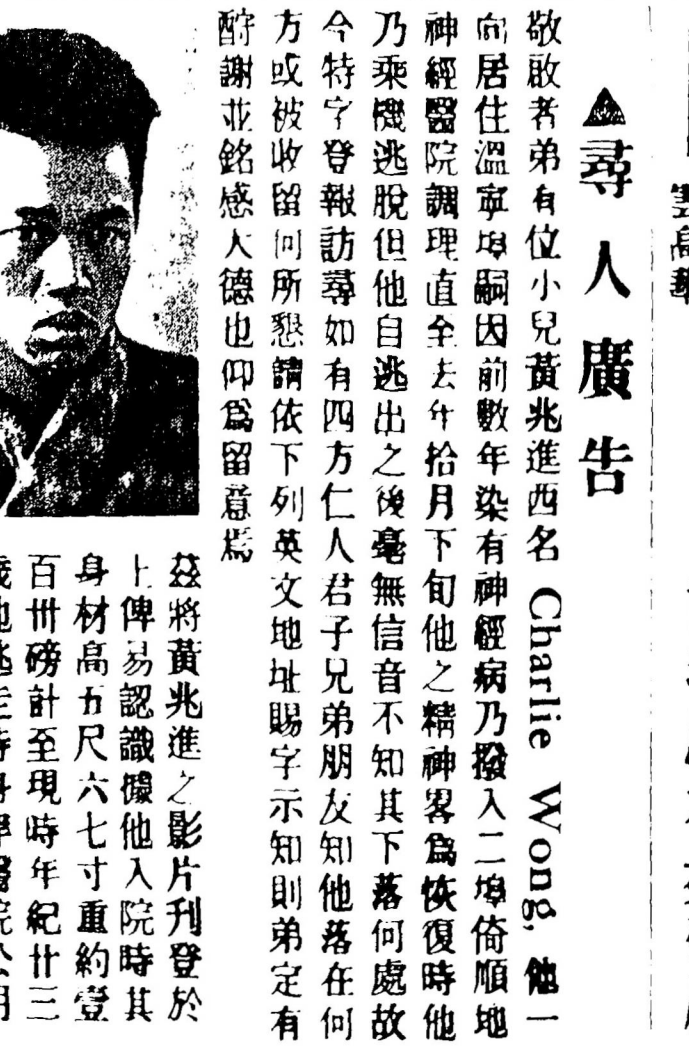 ▲尋人廣告
敬啟者弟有位小兒黃兆進西名 Charlie Wong, 他一
向居住溫寕埠嗣因前數年染有神經病乃撥入二埠倚順地
神經醫院調理直至去年拾月下旬他之精神畧為恢復時他
乃乘機逃脫但他自逃出之後毫無信音不知其下落何處故
今特字登報訪尋如有四方仁人君子兄弟朋友知他落在何
方或被收留何所懇請依下列英文地址賜字示知則弟定有
酧謝並銘感大德也仰為留意焉
茲將黃兆進之影片刊登於
上俾易認識據他入院時其
身材高五尺六七寸重約壹
百卅磅計至現時年紀廿三